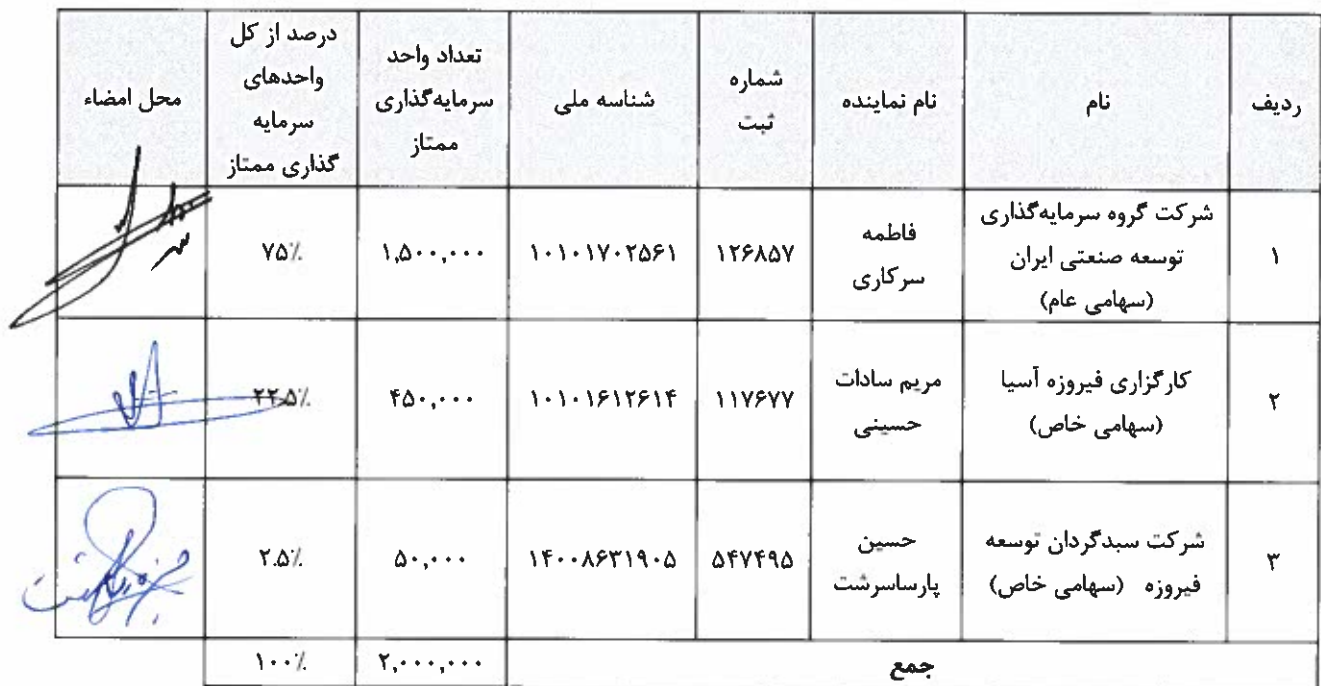 ردیف
نام
نام نماینده
شماره
ثبت
شناسه ملی
تعداد واحد
سرمایه‌گذاری
ممتاز
درصد از کل
واحدهای
سرمایه
گذاری ممتاز
محل امضاء
۱
شرکت گروه سرمایه‌گذاری
توسعه صنعتی ایران
(سهامی عام)
فاطمه
سرکاری
۱۲۶۸۵۷
۱۰۱۰۱۷۰۲۵۶۱
۱,۵۰۰,۰۰۰
۷۵٪
۲
کارگزاری فیروزه آسیا
(سهامی خاص)
مریم سادات
حسینی
۱۱۷۶۷۷
۱۰۱۰۱۶۱۲۶۱۴
۴۵۰,۰۰۰
۲۲.۵٪
۳
شرکت سبدگردان توسعه
فیروزه (سهامی خاص)
حسین
پارساسرشت
۵۴۷۴۹۵
۱۴۰۰۸۶۳۱۹۰۵
۵۰,۰۰۰
۲.۵٪
جمع
۲,۰۰۰,۰۰۰
۱۰۰٪